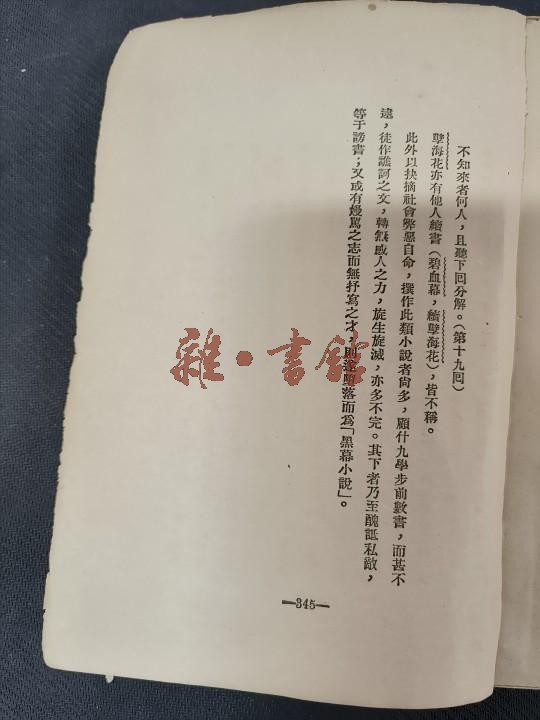 不知來者何人，且聽下回分解。（第十九回）
孽海花亦有他人續書（碧血幕，續孽海花），皆不稱。
此外以抉摘社會弊惡自命，撰作此類小說者尙多，顧什九學步前數書，而甚不
逮，徒作譙訶之文，轉無感人之力，旋生旋滅，亦多不完。其下者乃至醜詆私敵，
等于謗書；又或有嫚罵之志而無抒寫之才，則遂墮落而爲「黑幕小說」。
—345—
雜·書館